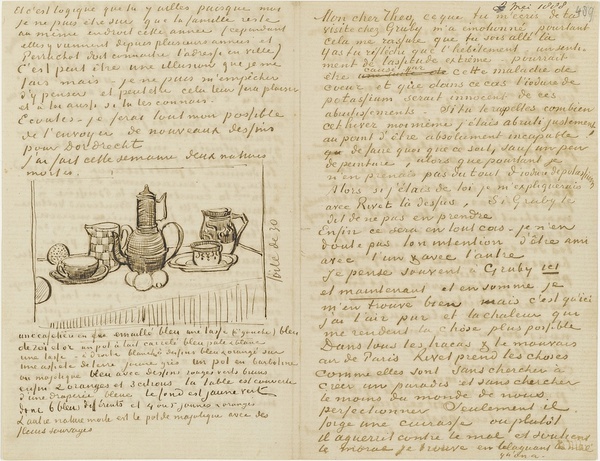 Et c'est logique que tu y ailles puisque moi
je ne puis et je sais que la famille reste
au même endroit cette année (cependant
elles y vannent depuis plusieurs années et
Perruchot doit connaître l'adresse en ville)
C'est peut être une illusion que je me
fais mais je ne puis m'empêcher
d'y penser et peut être cela leur fera plaisir
et à toi aussi si tu les connais.
Ecoutes – je ferai tout mon possible
de t'envoyer de nouveaux dessins
pour Dordrecht
J'ai fait cette semaine deux natures
mortes.
toile de 30
une cafetière en fer emaillé bleu une tasse (à gauche) bleu
de roi et or un pot à lait carrelé bleu pâle & blanc
une tasse – à droite – blanche à dessins bleus & orangé sur
une assiette de terre jaune gris un pot en barbotine
ou majolique bleu avec dessins rouges verts bruns
enfin 2 oranges et 3 citrons la table est couverte
d'une draperie bleue le fond est jaune vert
donc 6 bleus différents et 4 ou 5 jaunes & orangés
L'autre nature morte est le pot de majolique avec des
fleurs sauvages
Mai 1888 489
Mon cher Theo, ce que tu m'écris de ta
visite chez Gruby m'a chagriné pourtant
cela me rassure que tu sois allé là
As tu réfléchi que l'hébêtement – un senti-
ment de lassitude extrême – pourrait
être causé par cette maladie de
coeur et que dans ce cas l'iodure de
potassium serait innocent de ces
abrutissements. Dis tu te rappelles combien
cet hiver moi même j'étais abruti justement
au point d'être absolument incapable
de faire quoi que ce soit, sauf un peu
de peinture, alors que pourtant je
n'en prenais pas du tout d'iodure de potassium
Alors si j'étais de toi je m'expliquerais
avec Rivet là dessus, si Gruby te
dit de ne pas en prendre.
Enfin ce sera en tout cas – je n'en
doute pas ton intention d'être ami
avec l'un & avec l'autre
Je pense souvent à Gruby ici
et maintenant et en somme je
m'en trouve bien mais c'est qu'ici
j'ai l'air pur et la chaleur qui
me rendent la chose plus possible
Dans tous les tracas & le mauvais
air de Paris Rivet prend les choses
comme elles sont sans chercher à
créer un paradis et sans chercher
le moins du monde de nous
perfectionner. Seulement il
forge une cuirasse ou plutôt
il aguerrit contre le mal et soutient
le moral je trouve en blaguant le mal
qu'on a.